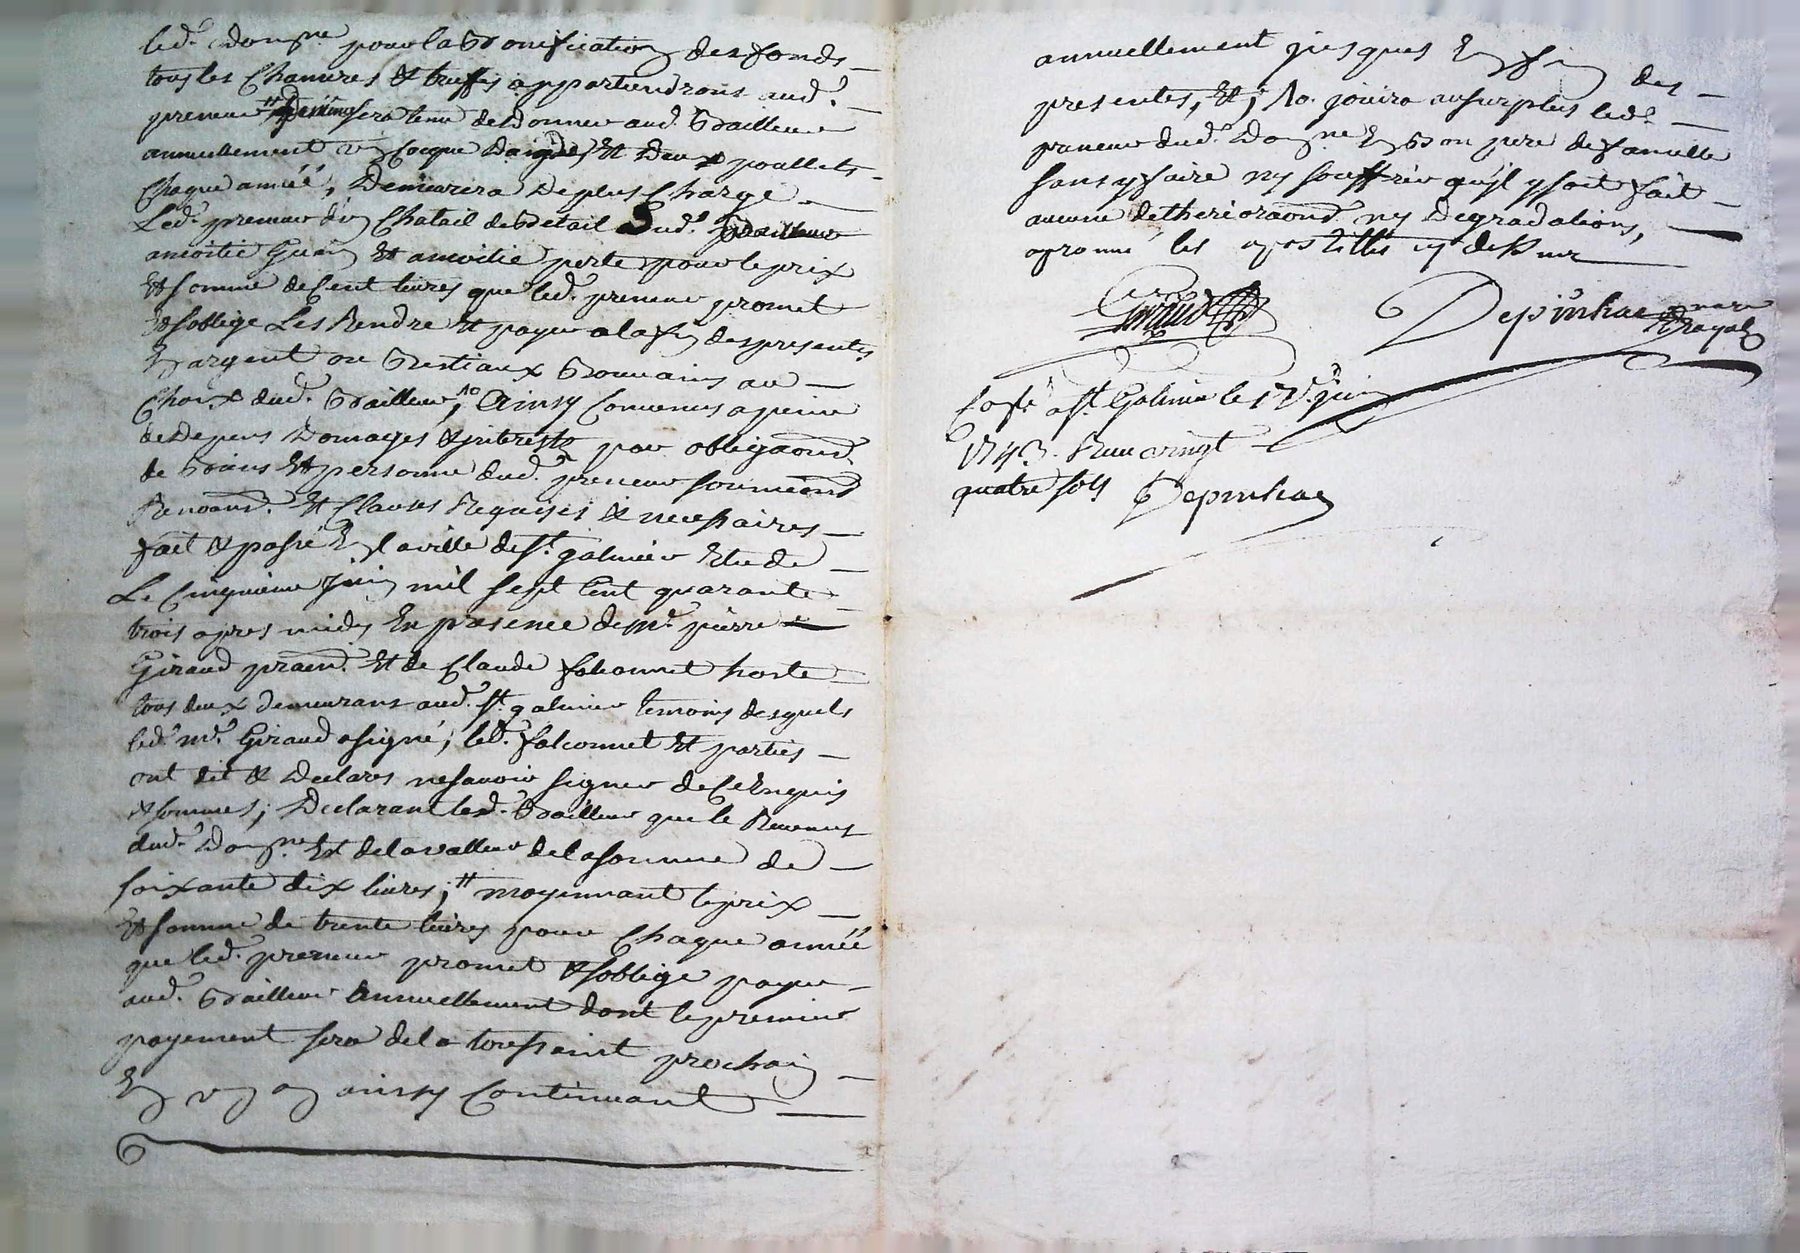 led. domne pour la bonification des fonds
tous les chanvres & truffes appartiendront aud.
preneur # sera tenu de donner aud. bailleur
annuellement un cocque daigne et deux poullets
chaque année, Demeurera de plus chargé
Led. preneur d'un chatail de betail dud. bailleur
amoitié guain et amoitié perte pour le prix
et somme de cent livres que led. preneur promet
& soblige Les Rendre et payer a la fin des presentes
En argent ou bestiaux bonnains au
choix dud. bailleur, Ainsy convenus a peine
de depens domages & interests par obligaons
de biens et personne dud. preneur soumions
Renoans. et clauses Requises & necessaires
fait & passé En la ville de st. galmier etude
Le cinquieme juin mil sept cent quarante
trois apres midy En presence de mr. pierre
Giraud praen. et de claude falconnet hoste
tous deux demeurans aud. st. galmier temoins desquels
led. mr. Giraud a signé; led. falconnet et parties
ont dit & declares ne savoir signer de ce Enquis
& sommes; declarant led. bailleur que le Revenus
dud. domne. et de la valleur de la somme de
soixante dix livres; # moyennant le prix
et somme de trente livres pour chaque année
que led. preneur promet & soblige payer
aud. bailleur annuellement dont le premier
payement sera de la toussaint prochain
En un an ainsy continuant
annuellement jusques En fin des
presentes, et; No. jouira au surplus led.
preneur dud. domne En bon pere de famille
sans y faire ny souffrir quyl y soit fait
aucune detherioraons ny degradations,
aprouvé les apostilles cy dessus
Giraud Depinhac nore Royal
Cosé a st. Galmier le 17e. juin
1743. Reçu vingt
quatre sols Depinhac